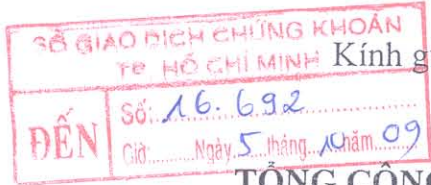 SỞ GIAO DỊCH CHỨNG KHOÁN
TP. HỒ CHÍ MINH
Kính g
ĐẾN
Số: 16.692
Giờ:.........Ngày 5 tháng 10 năm 09
TỔNG CÔNG